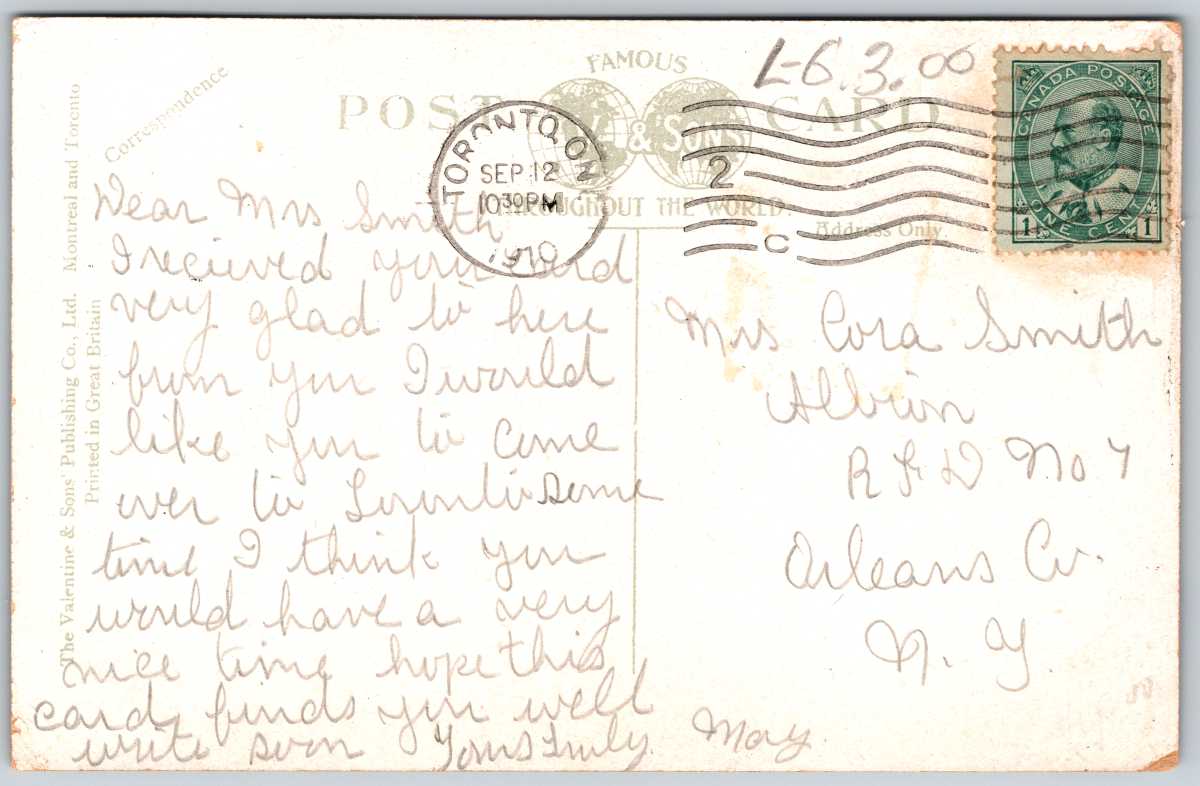 L-6.3.00
FAMOUS
POST CARD
& SONS'
THROUGHOUT THE WORLD.
TORONTO, ON
SEP 12
10 30 PM
1910
2
C
CANADA POSTAGE
1 ONE CENT 1
Correspondence
Address Only
The Valentine & Sons' Publishing Co., Ltd. Montreal and Toronto
Printed in Great Britain
Dear Mrs Smith
I recieved your card
very glad to here
from you I would
like you to come
over to Toronto some
time I think you
would have a very
nice time hope this
card finds you well
write soon Yours Truly May
Mrs Cora Smith
Albion
R F D No 7
Orleans Co.
N. Y.